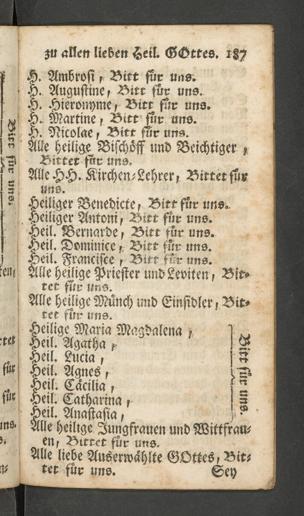 zu allen lieben Heil. GOttes. 187
H. Ambrosi, Bitt für uns.
H. Augustine, Bitt für uns.
H. Hieronyme, Bitt für uns.
H. Martine, Bitt für uns.
H. Nicolae, Bitt für uns.
Alle heilige Bischöff und Beichtiger,
Bittet für uns.
Alle H.H. Kirchen-Lehrer, Bittet für
uns.
Heiliger Benedicte, Bitt für uns.
Heiliger Antoni, Bitt für uns.
Heil. Bernarde, Bitt für uns.
Heil. Dominice, Bitt für uns.
Heil. Francisce, Bitt für uns.
Alle heilige Priester und Leviten, Bit-
tet für uns.
Alle heilige Münch und Einsidler, Bit-
tet für uns.
Heilige Maria Magdalena,
Heil. Agatha,
Heil. Lucia,
Heil. Agnes,
Heil. Cäcilia,
Heil. Catharina,
Heil. Anastasia,
Bitt für uns.
Alle heilige Jungfrauen und Wittfrau-
en, Bittet für uns.
Alle liebe Auserwählte GOttes, Bit-
tet für uns. Sey
Bitt für uns.